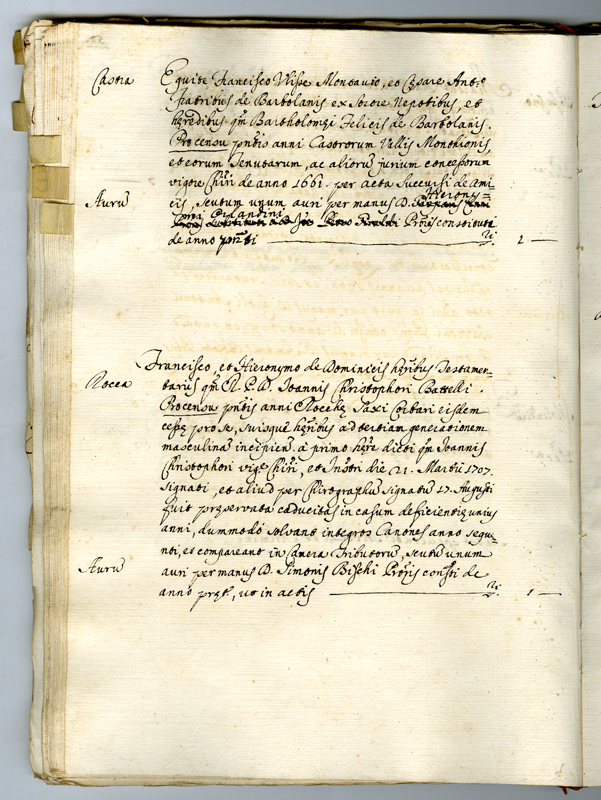 Castra
Equite Francisco Ulisse Montauto, et Cesare Ant.o
fratribus de Barbolanis ex Sorore Nepotibus, et
hęredibus qm̄ Bartholomęi Felicis de Barbolanis.
Pro censu pn̄tis anni Castrorum Vallis Monthionis,
et eorum Tenutarum, ac aliorū jurium concessorum
vigore Chīri de anno 1661. per acta Succursi de Ami
Aurū
cis, scutum unum auri per manus D. Hierony=
mi Orlandini Proris constituti
de anno pn̄ti
1 —
Rocca
Francisco, et Hieronymo de Dominicis hęribus Testamen=
tariis qm̄ Joannis Christophori Battelli
Pro censu pn̄tis anni Roccę Saxi Corbari eisdem
cessę pro se, suisquē hęribus ad tertiam generationem
masculinā incipien. à primo hęre dicti qm̄ Joannis
Christophori vige Chīri, et Instri die 21. Martii 1707.
signati, et aliud per Chirographū signatū 17. Augusti
fuit pręservata caducitas in casum deficientię unius
anni, dummodò solvant integros Canones anno seque=
nti, et compareant in Camera Tributorū, scutū unum
Aurū
auri per manus D. Simonis Bischi Proris consti de
anno pręt, ut in actis
1 —